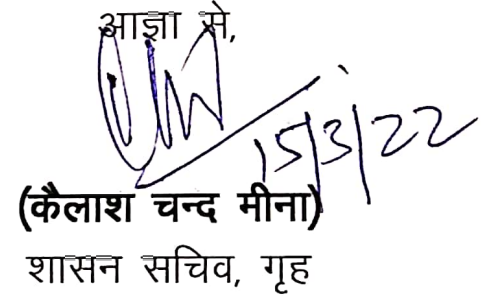 आज्ञा से,
15/3/22
(कैलाश चन्द मीना)
शासन सचिव, गृह